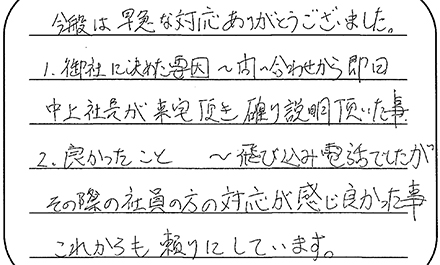 今般は早急な対応ありがとうございました。
1.御社に決めた要因～問い合わせから即日
中上社長が来宅頂き確り説明頂いた事
2.良かったこと ～飛び込み電話でしたが
その際の社員の方の対応が感じ良かった事
これからも頼りにしています。